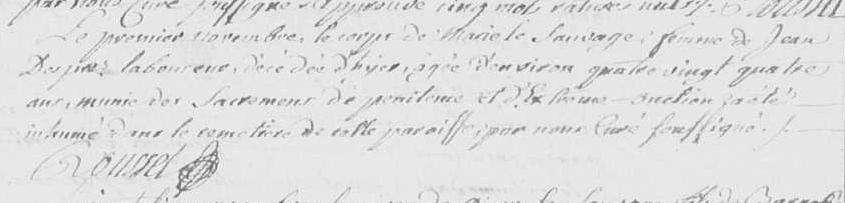 par nous Curé soussigné approuvé cinq mots raturés nuls. Roussel
Le premier novembre, le corps de Marie le Sauvage, femme de Jean
Desprez laboureur, décédée d'hyer, agée d'environ quatre vingt quatre
ans, munie des Sacremens de penitence et d'Extrême-onction, a été
inhumé dans le cemetiere de cette paroisse, par nous Curé soussigné. /.
Roussel